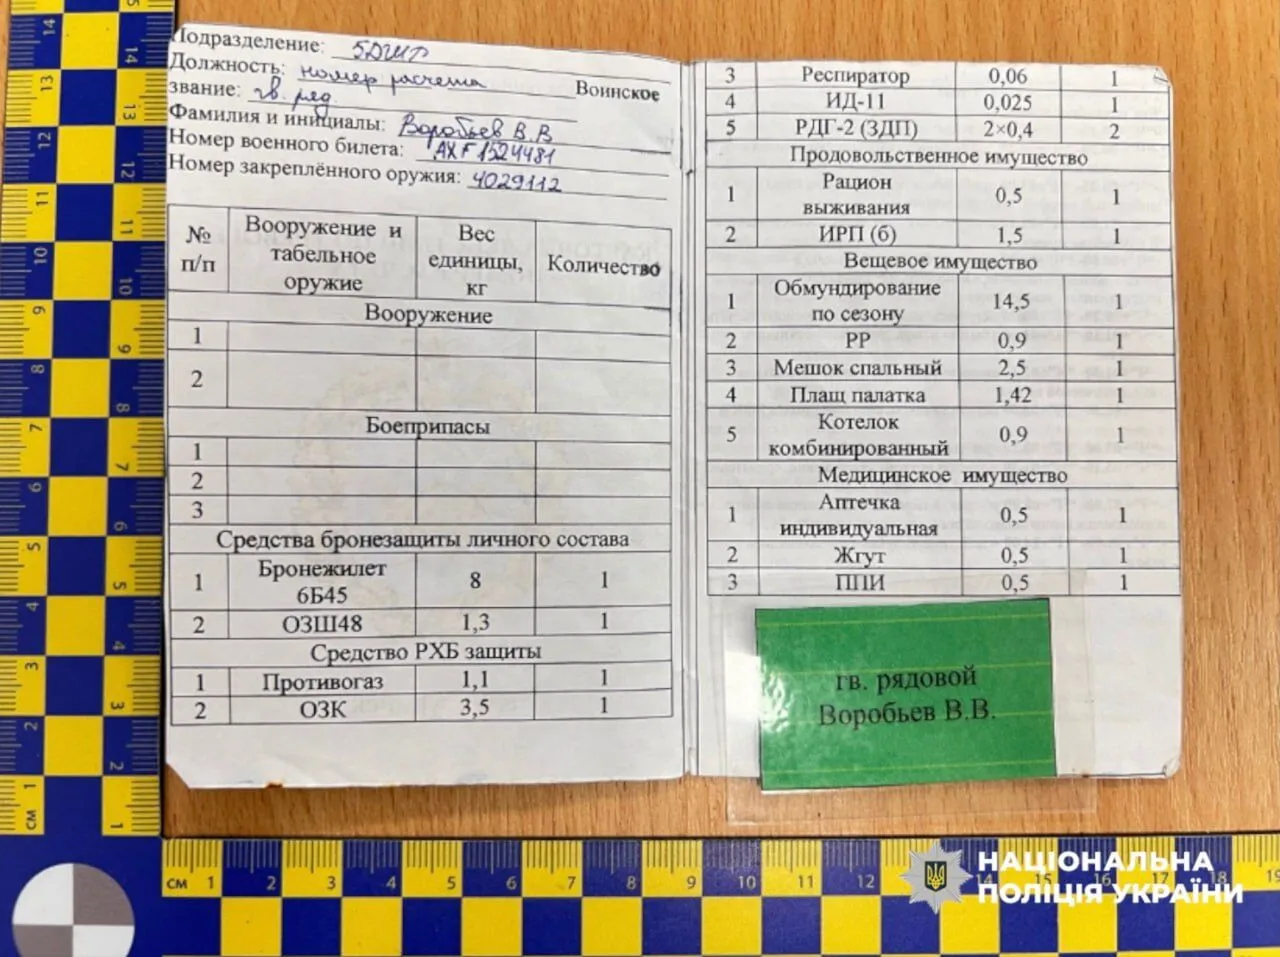 Подразделение: 5ДШР
Должность: номер расчета Воинское
звание: гв. ряд.
Фамилия и инициалы: Воробьев В.В
Номер военного билета: АХГ 1524481
Номер закреплённого оружия: 4029112
№ п/п Вооружение и табельное оружие Вес единицы, кг Количество
Вооружение
1
2
Боеприпасы
1
2
3
Средства бронезащиты личного состава
1 Бронежилет 6Б45 8 1
2 ОЗШ48 1,3 1
Средство РХБ защиты
1 Противогаз 1,1 1
2 ОЗК 3,5 1
3 Респиратор 0,06 1
4 ИД-11 0,025 1
5 РДГ-2 (ЗДП) 2×0,4 2
Продовольственное имущество
1 Рацион выживания 0,5 1
2 ИРП (б) 1,5 1
Вещевое имущество
1 Обмундирование по сезону 14,5 1
2 РР 0,9 1
3 Мешок спальный 2,5 1
4 Плащ палатка 1,42 1
5 Котелок комбинированный 0,9 1
Медицинское имущество
1 Аптечка индивидуальная 0,5 1
2 Жгут 0,5 1
3 ППИ 0,5 1
гв. рядовой
Воробьев В.В.
НАЦІОНАЛЬНА
ПОЛІЦІЯ УКРАЇНИ